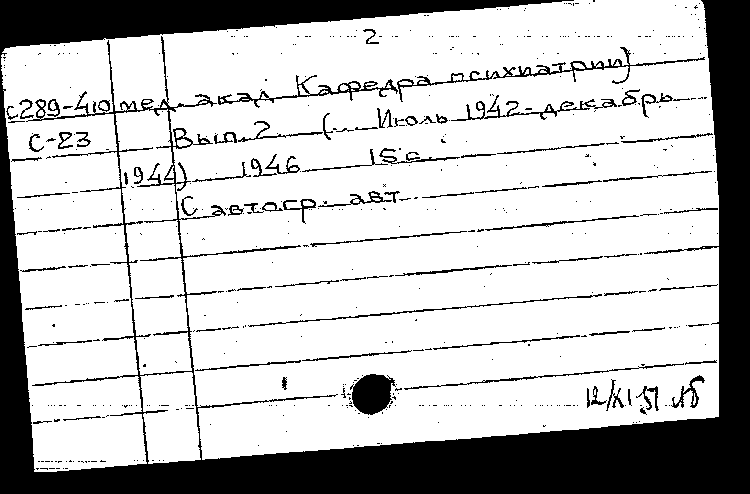 2
с289-410 мед. акад. Кафедра психиатрии)
С-23 Вып. 2 (... Июль 1942-декабрь
1944) 1946 15 с.
С автогр. авт
12/XI-51